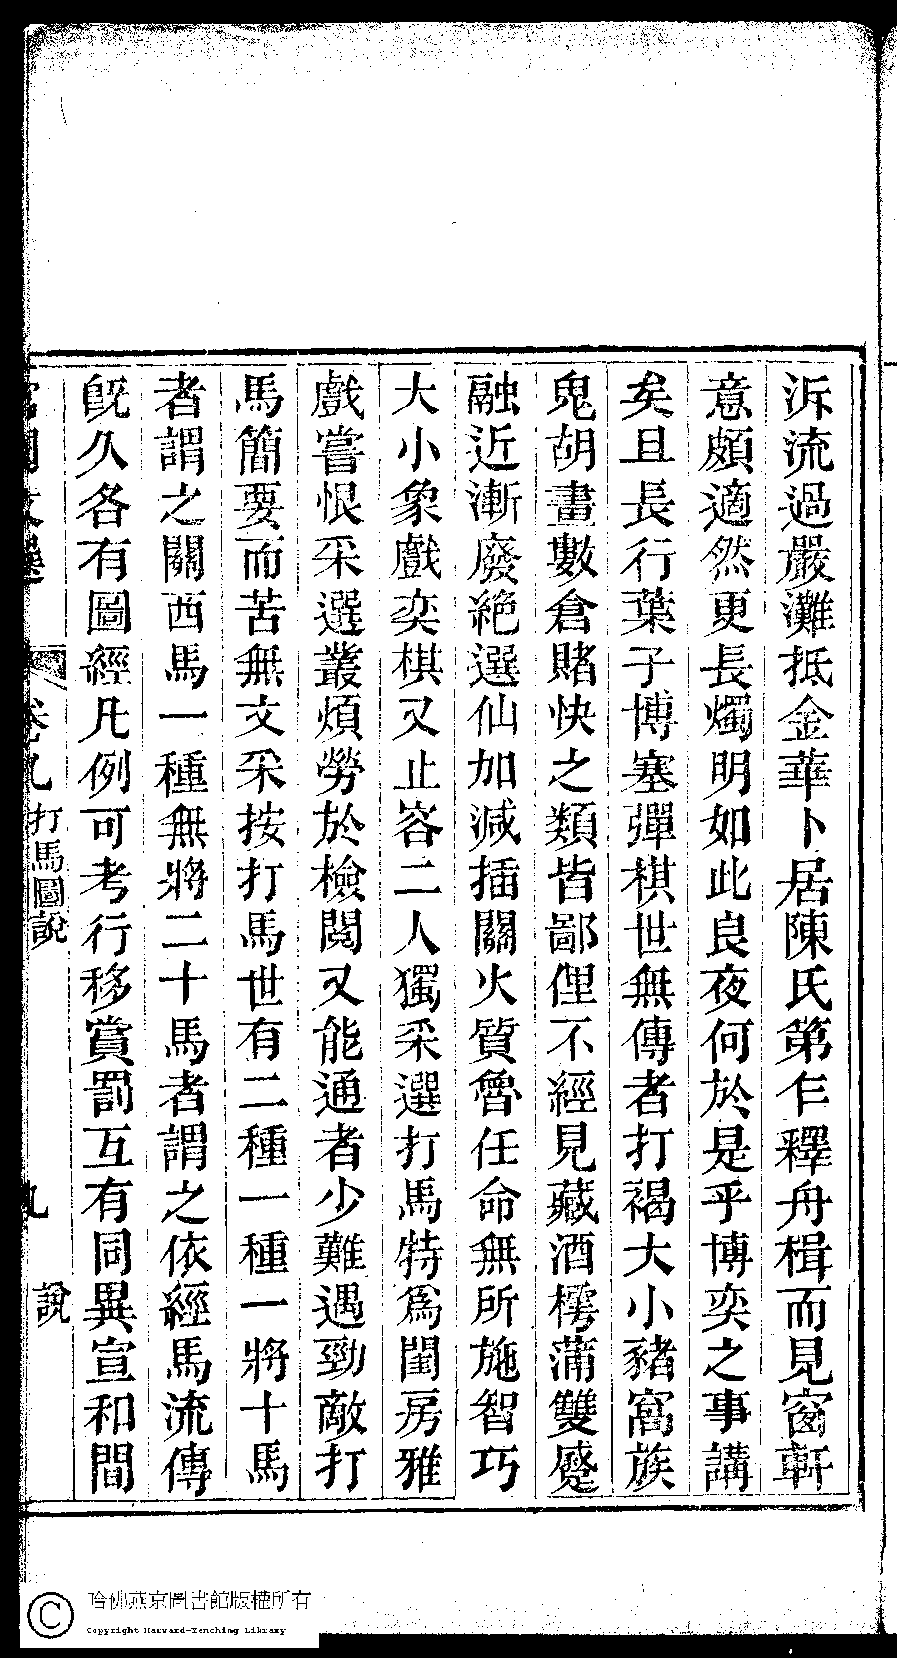 泝流過嚴灘抵金華卜居陳氏第乍釋舟楫而見窗軒
意頗適然更長燭明如此良夜何於是乎博奕之事講
矣且長行葉子博塞彈棋世無傳者打褐大小豬窩族
鬼胡畫數倉賭快之類皆鄙俚不經見藏酒樗蒲雙蹙
融近漸廢絶選仙加減插關火質魯任命無所施智巧
大小象戲奕棋又止容二人獨采選打馬特爲閨房雅
戲嘗恨采選叢煩勞於檢閱又能通者少難遇勁敵打
馬簡要而苦無文采按打馬世有二種一種一將十馬
者謂之關西馬一種無將二十馬者謂之依經馬流傳
旣久各有圖經凡例可考行移賞罰互有同異宣和間
卷九 打馬圖說 九 說
哈佛燕京圖書館版權所有
Copyright Harvard-Yenching Library